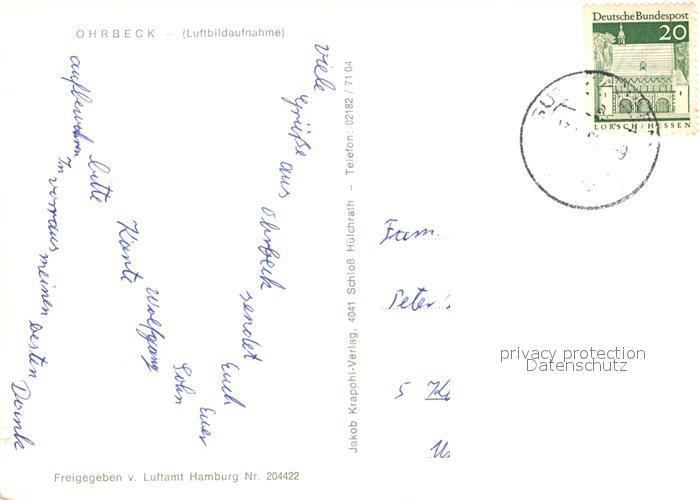 OHRBECK - (Luftbildaufnahme)
Viele
Grüße aus
Ohrbeck
sendet
Euch
Euer
Sohn
Wolfgang
Karte
bitte
aufbewahren
In vorraus meinen besten Dank
Freigegeben v. Luftamt Hamburg Nr. 204422
Jakob Krapohl-Verlag, 4041 Schloß Hülchrath - Telefon: 02182 / 71 04
Deutsche Bundespost
20
LORSCH/HESSEN
Fam.
Peter
5
privacy protection
Datenschutz